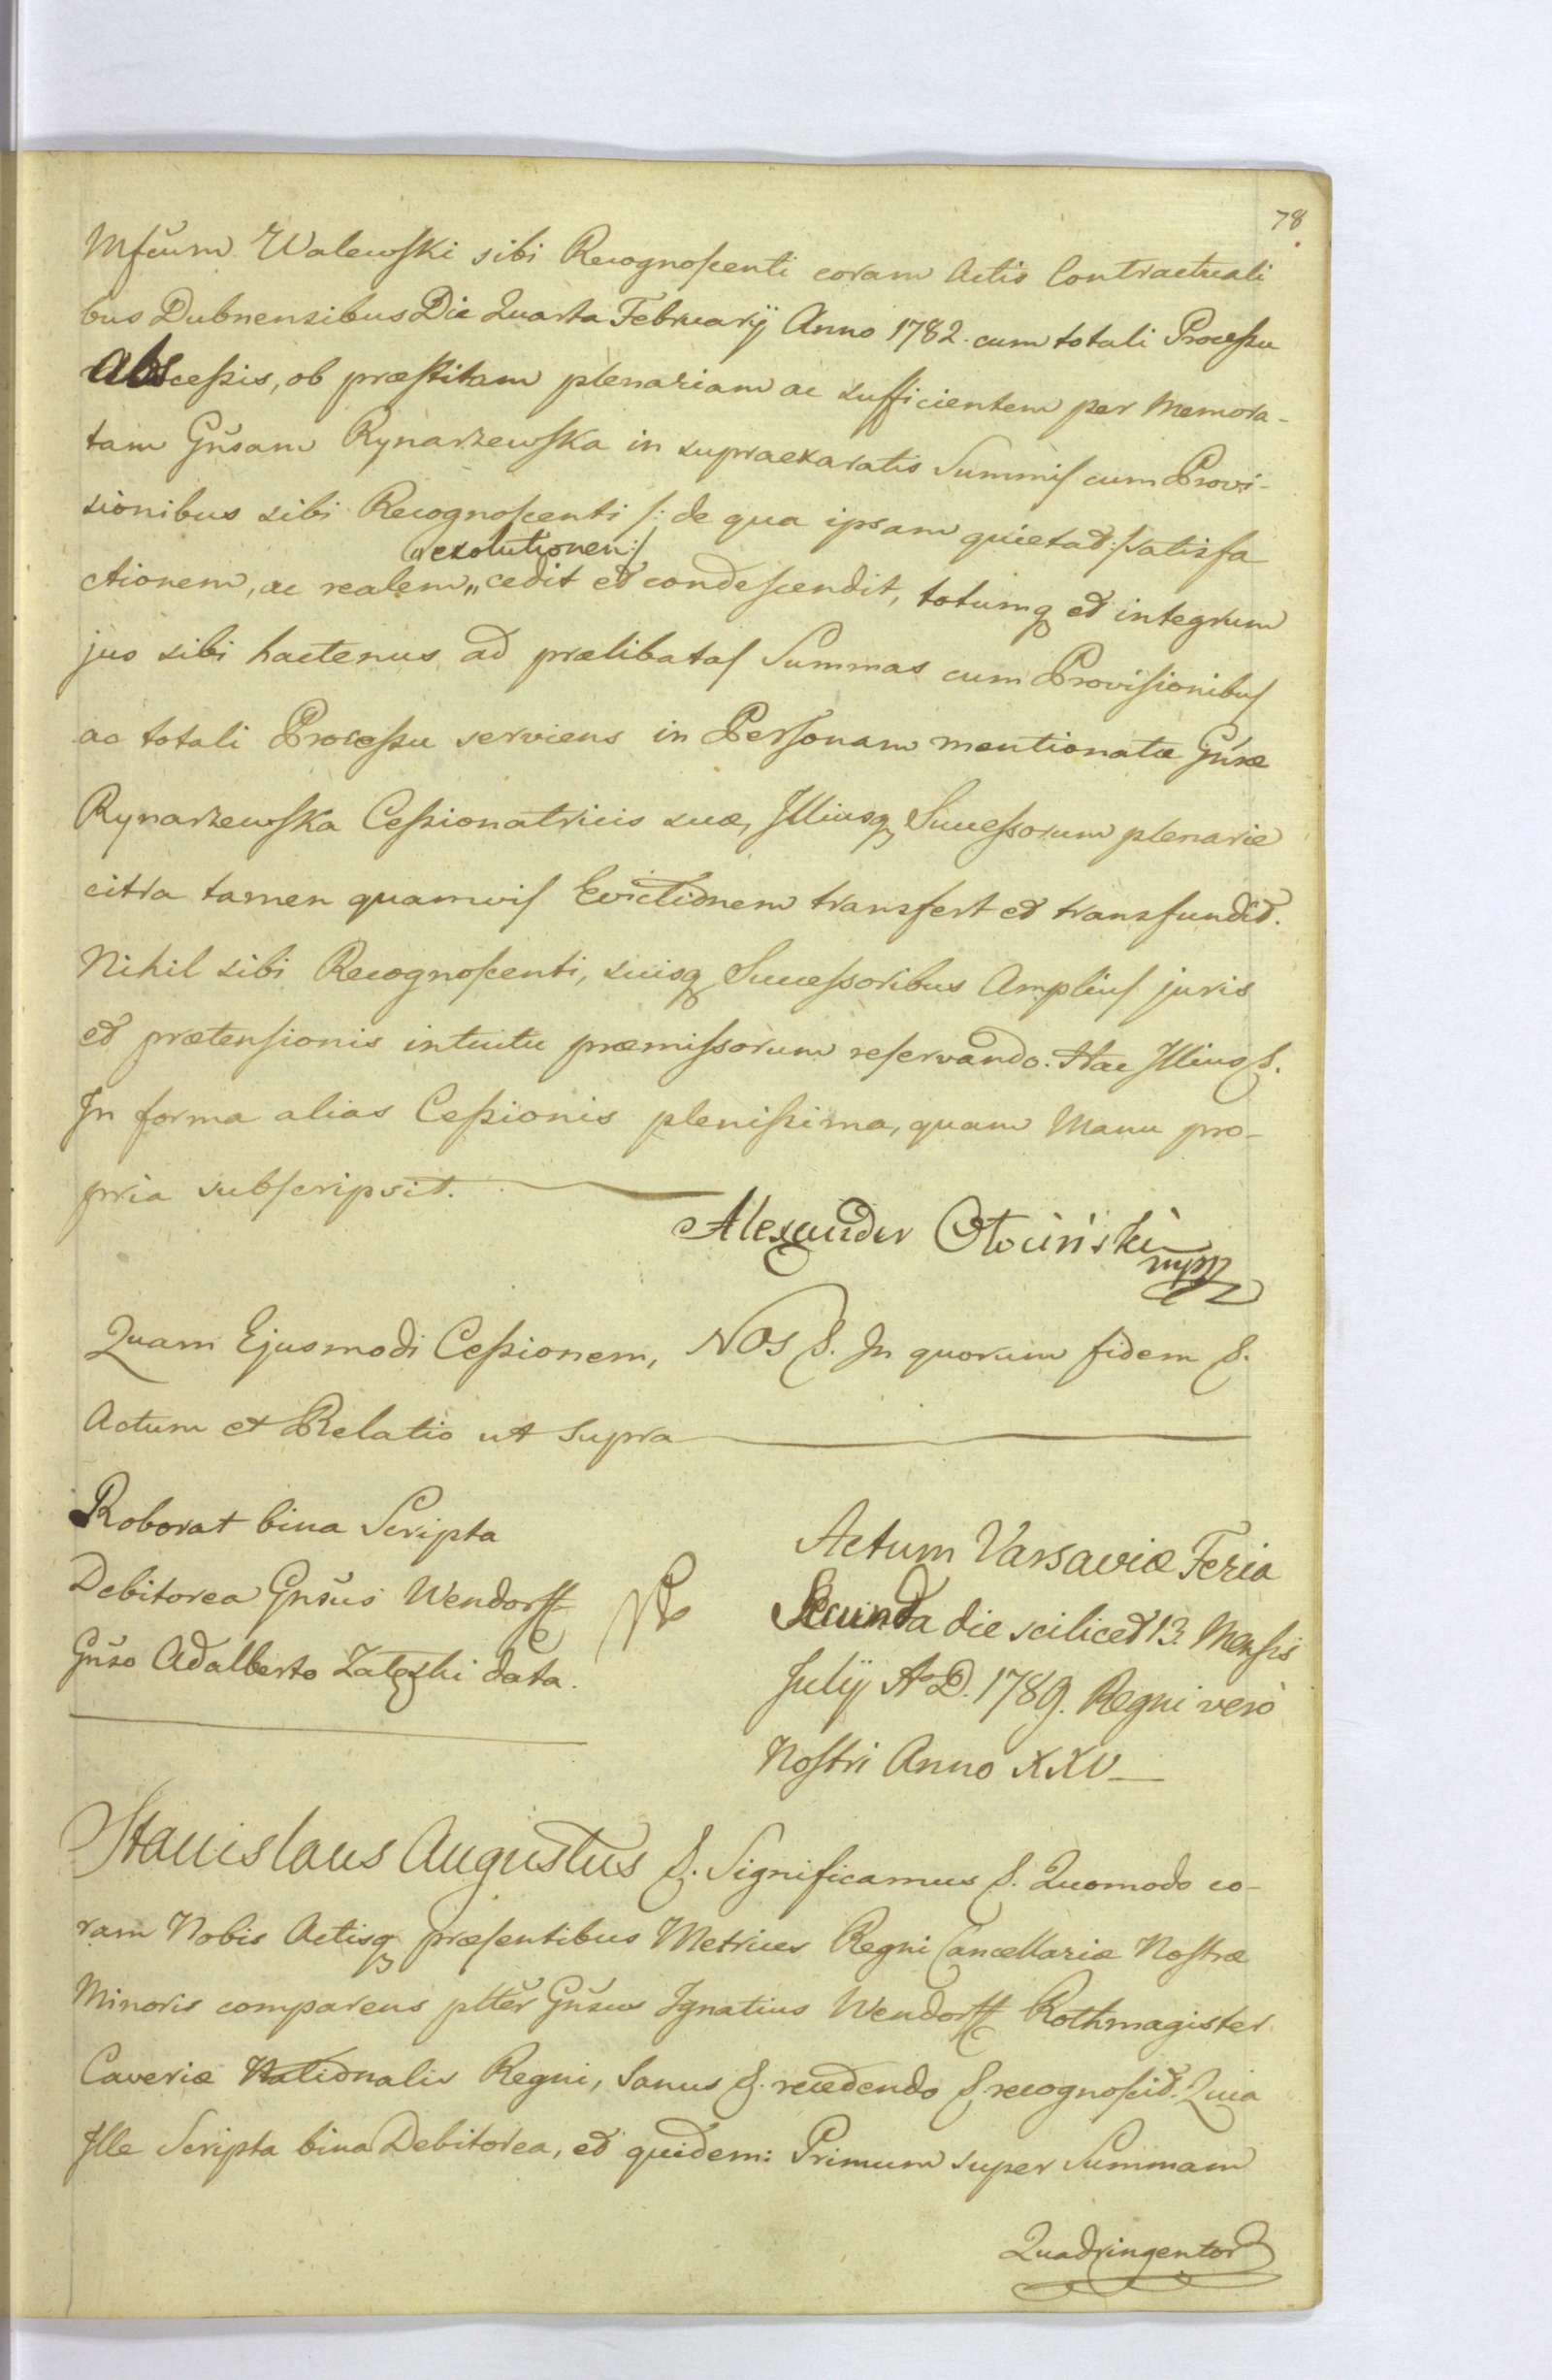 78
Mfcum Walewski sibi Recognoscenti coram Actis Contractuali
bus Dubnensibus Die Quarta Februarij Anno 1782. cum totali Processu
Abscessis, ob præstitam plenariam ac sufficientem per Memora-
tam Gnsam Rynarzewska in supraexaratis Summis cum Provi-
sionibus sibi Recognoscenti /: de qua ipsam quietat :/ satisfa
„exolutionem:/
ctionem, ac realem„ cedit et condescendit, totumq et integrum
jus sibi hactenus ad prælibatas Summas cum Provisionibus
ac totali Processu serviens in Personam mentionatæ Gnsæ
Rynarzewska Cessionatricis suæ, Illiusq Successorum plenarie
citra tamen quamvis Evictionem transfert et transfundit.
Nihil sibi Recognoscenti, suisq Successoribus Amplius juris
et prætensionis intuitu præmissorum reservando. Hac Illius &.
In forma alias Cessionis plenissima, quam Manu pro-
pria subscripsit.
Alexander Otociński mpp
Quam Ejusmodi Cessionem, NOS &. In quorum fidem &.
Actum et Relatio ut supra
Roborat bina Scripta
Debitorea Gnsus Wendorff
Gnso Adalberto Zaleski data.
Actum Varsaviæ Feria
Secunda die scilicet 13. Mensis
Julij A. D. 1789. Regni verò
Nostri Anno XXV
Stanislaus Augustus &. Significamus &. Quomodo co-
ram Nobis Actisq præsentibus Metrices Regni Cancellariæ Nostræ
Minoris comparens pltter Gnsus Ignatius Wendorff Rothmagister
Caveriæ Nationalis Regni, Sanus &. recedendo &. recognoscit. Quia
Ille Scripta bina Debitorea, et quidem: Primum super Summam
Quadringentor